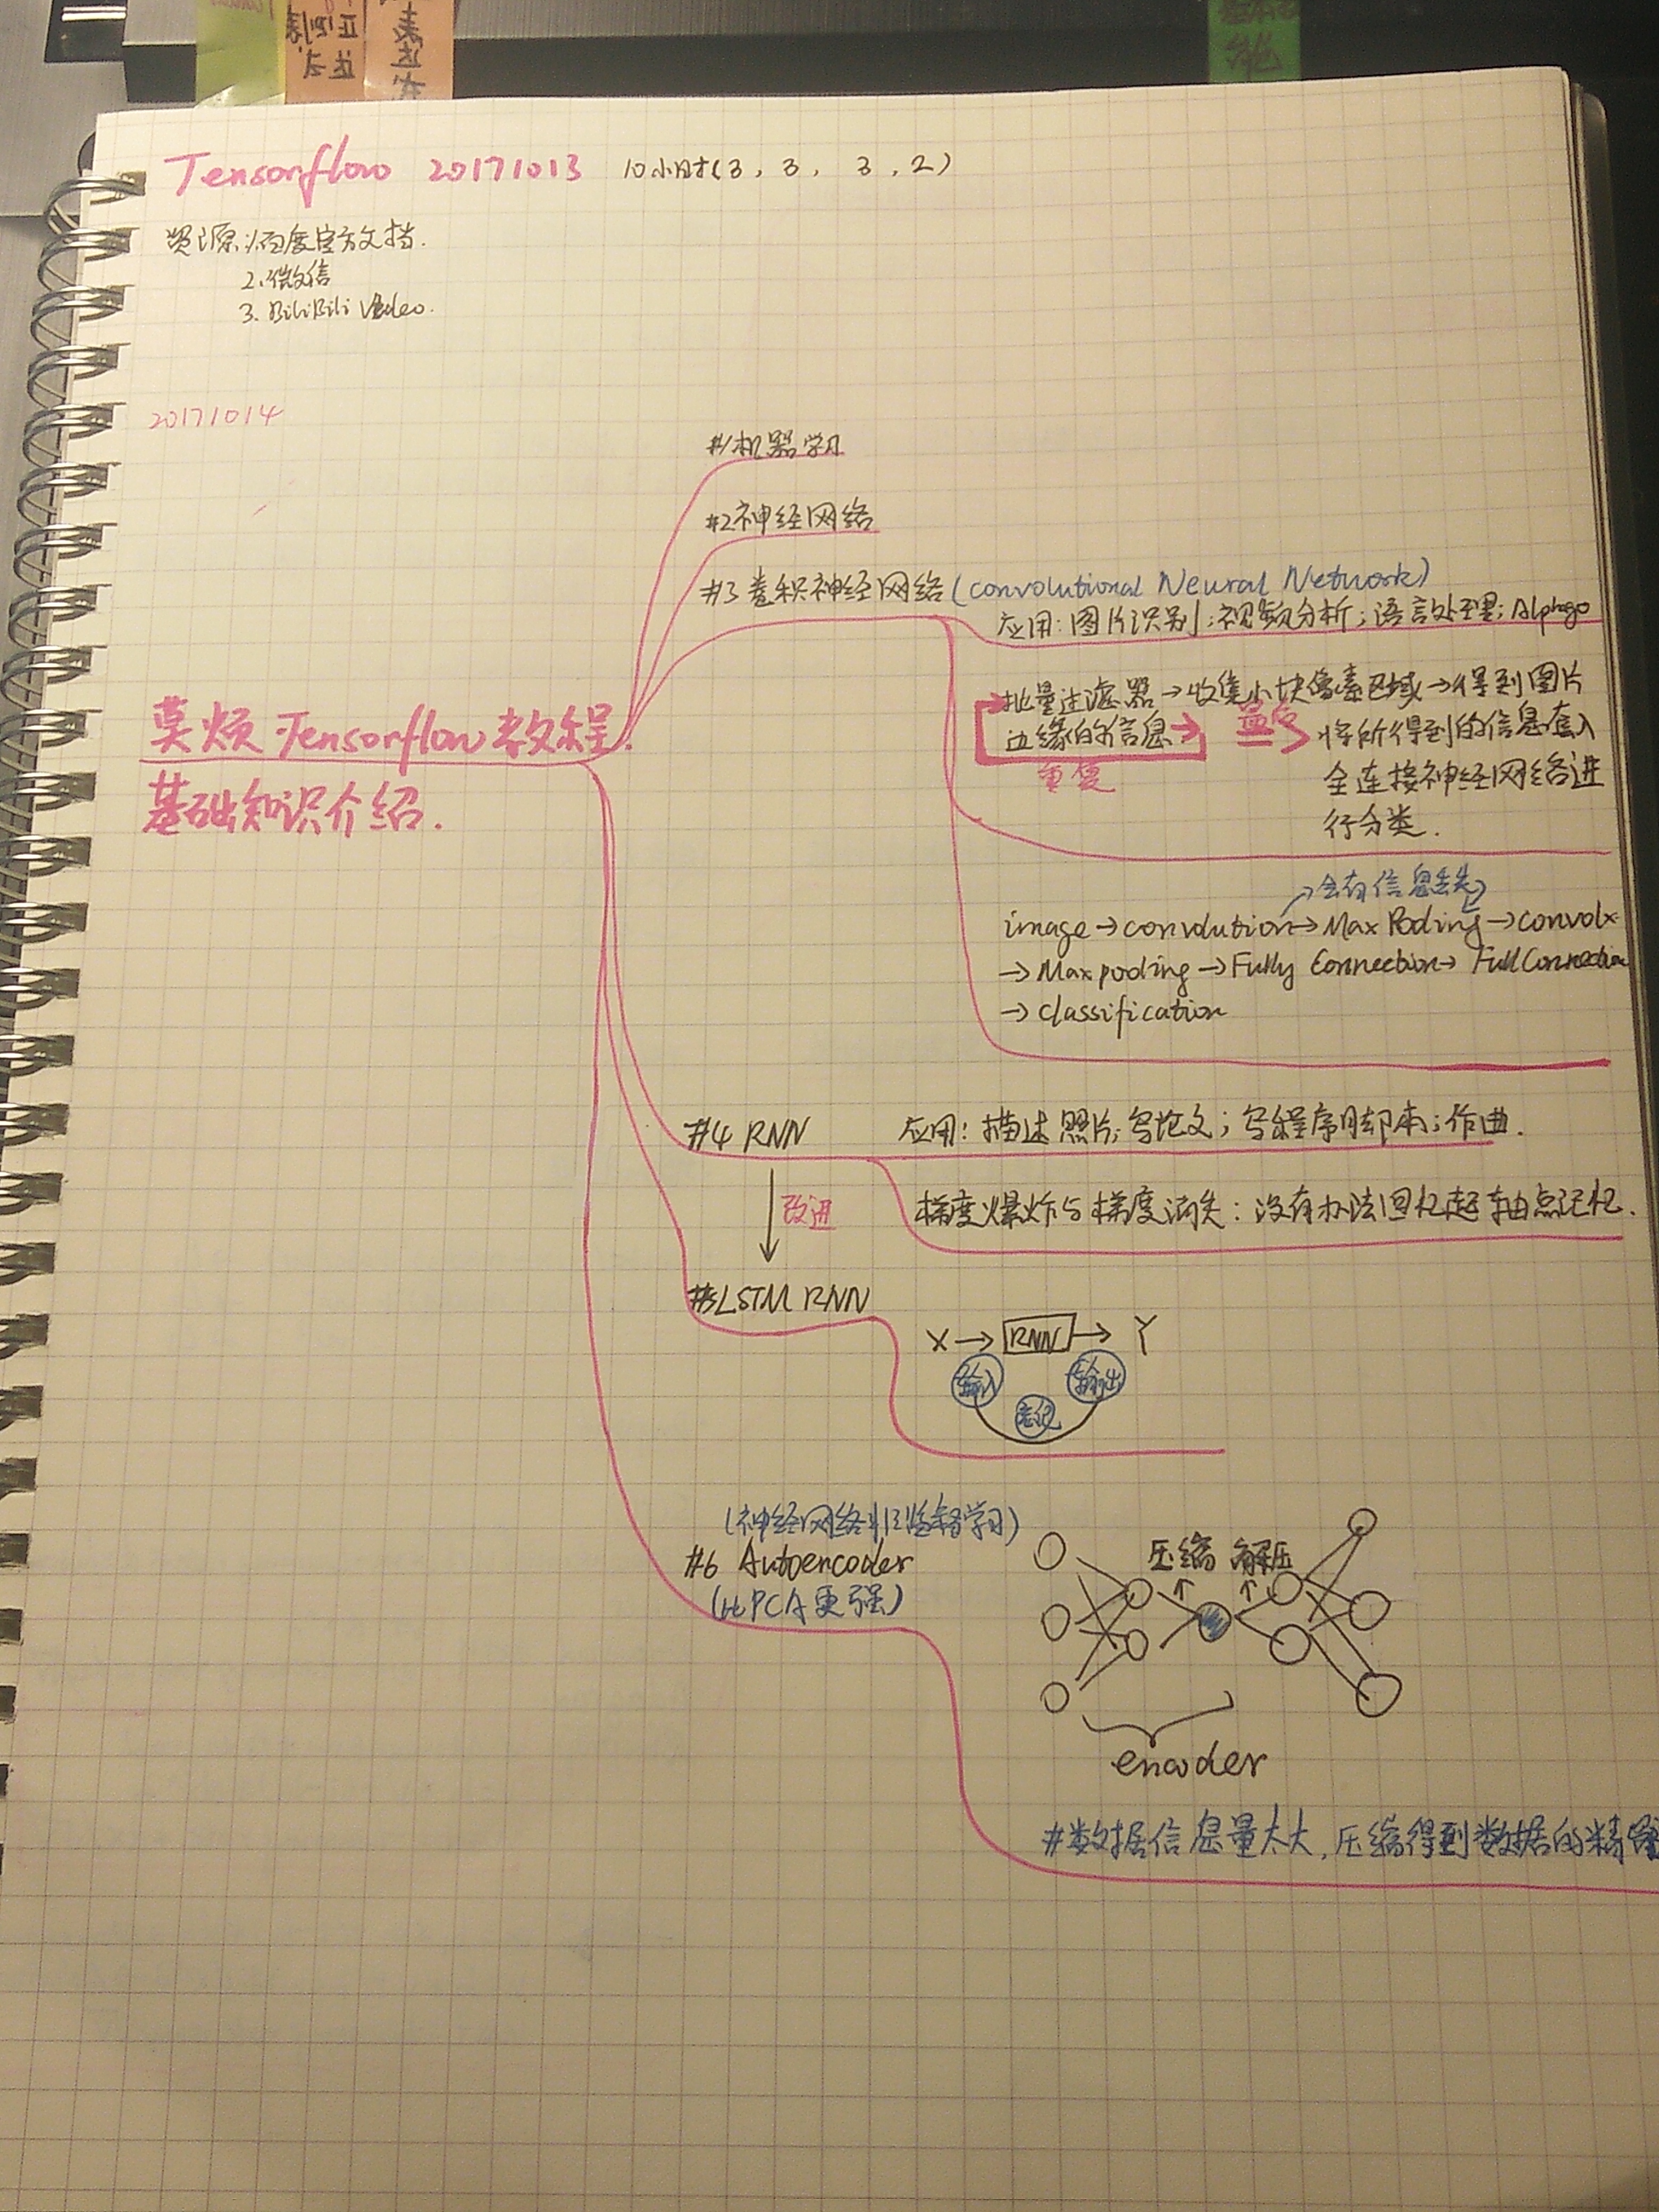 Tensorflow 20171013 10小时(3, 3, 3, 2)
资源:1.百度官方文档.
2.微信
3. BiliBili Video.
20171014
莫烦 Tensorflow教程.
基础知识介绍.
#1机器学习
#2神经网络
#3卷积神经网络(convolutional Neural Network)
应用:图片识别;视频分析;语言处理;Alphago
批量过滤器→收集小块像素区域→得到图片
边缘的信息
重复
最后
将所得到的信息套入
全连接神经网络进
行分类.
会有信息丢失
image→convolution→Max Pooling→convolx
→Maxpooling→Fully Connection→Full Connection
→classification
#4 RNN
应用:描述照片;写论文;写程序脚本;作曲.
梯度爆炸与梯度消失:没有办法回忆起 点记忆.
改进
#5LSTM RNN
X→RNN→Y
输入 输出
忘记
(神经网络非监督学习)
#6 Autoencoder
(比PCA更强)
压缩 解压
encoder
#数据信息量太大,压缩得到数据的精